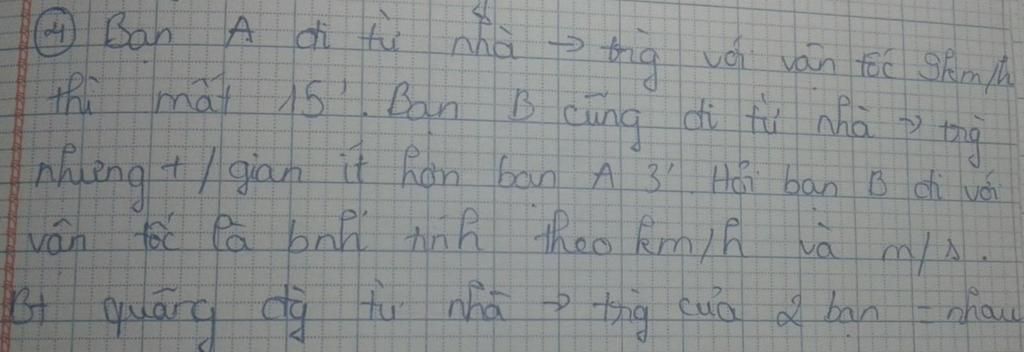 ④ Bạn A đi từ nhà → trg với vận tốc 9km/h
thì mất 15'. Bạn B cũng đi từ nhà → trg
nhưng t/gian ít hơn bạn A 3'. Hỏi bạn B đi với
vận tốc là bnh' tính theo km/h và m/s.
Bt quãng đg từ nhà → trg của 2 bạn = nhau